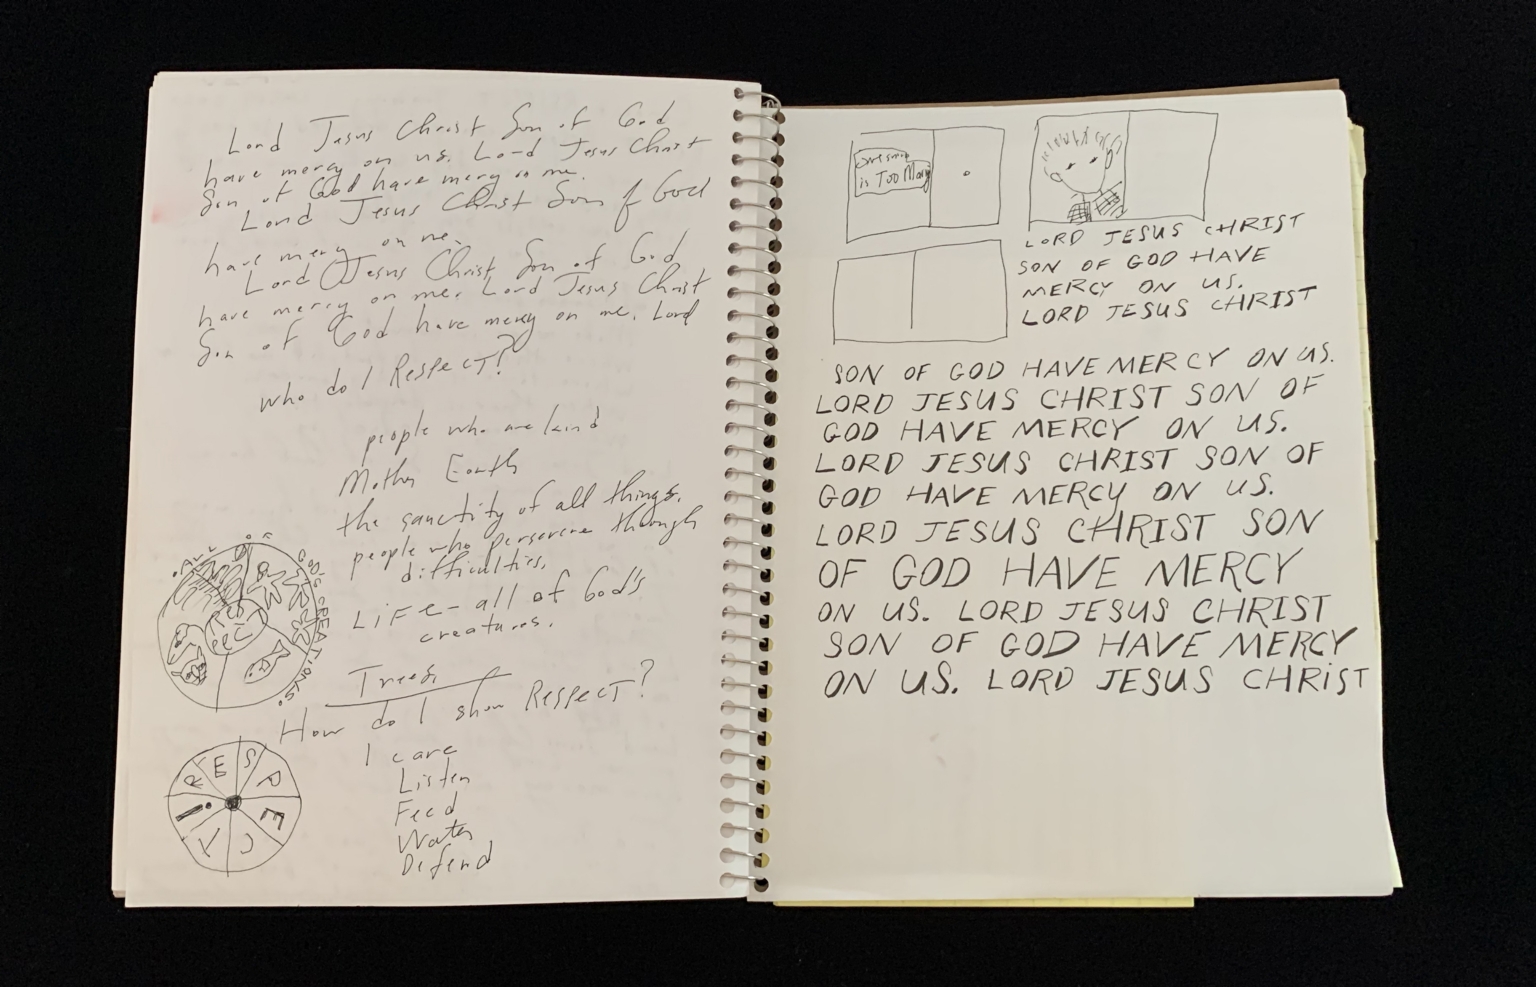 Lord Jesus Christ Son of God
have mercy on us. Lord Jesus Christ
Son of God have mercy on me.
Lord Jesus Christ Son of God
have mercy on me.
Lord Jesus Christ Son of God
have mercy on me. Lord Jesus Christ
Son of God have mercy on me. Lord
who do I RESPECT?
people who are kind
Mother Earth
the sanctity of all things.
people who persevere through
difficulties.
LiFe - all of God's
creatures.
Trees.
How do I show RESPECT?
I care
Listen
Feed
Water
Defend
.ALL OF GOD'S CREATIONS.
RESPECT!
is Too Many
LORD JESUS CHRIST
SON OF GOD HAVE
MERCY ON US.
LORD JESUS CHRIST
SON OF GOD HAVE MERCY ON US.
LORD JESUS CHRIST SON OF
GOD HAVE MERCY ON US.
LORD JESUS CHRIST SON OF
GOD HAVE MERCY ON US.
LORD JESUS CHRIST SON
OF GOD HAVE MERCY
ON US. LORD JESUS CHRIST
SON OF GOD HAVE MERCY
ON US. LORD JESUS CHRIST